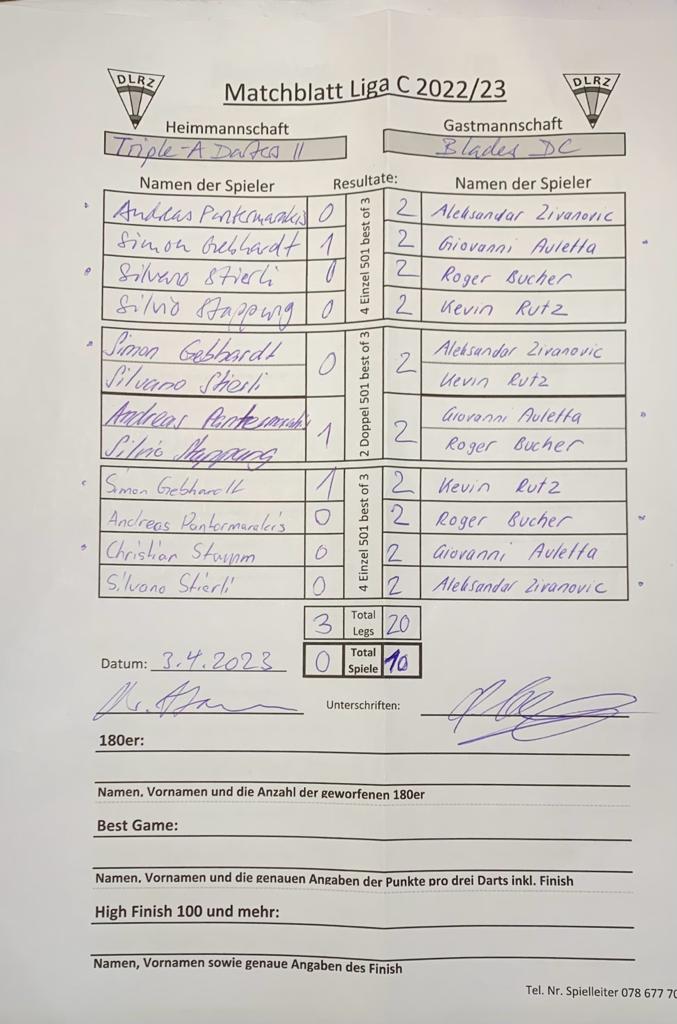 DLRZ Matchblatt Liga C 2022/23 DLRZ
Heimmannschaft Gastmannschaft
Triple-A Darters II Blades DC
Namen der Spieler Resultate: Namen der Spieler
4 Einzel 501 best of 3
Andreas Pantermarakis 0 2 Aleksandar Zivanovic
Simon Gebhardt 1 2 Giovanni Auletta
Silvano Stierli 0 2 Roger Bucher
Silvio Stappung 0 2 Kevin Rutz
2 Doppel 501 best of 3
Simon Gebhardt 0 2 Aleksandar Zivanovic
Silvano Stierli Kevin Rutz
Andreas 1 2 Giovanni Auletta
Silvio Stappung Roger Bucher
4 Einzel 501 best of 3
Simon Gebhardt 1 2 Kevin Rutz
Andreas Pantermarakis 0 2 Roger Bucher
Christian Stamm 0 2 Giovanni Auletta
Silvano Stierli 0 2 Aleksandar Zivanovic
3 Total Legs 20
Datum: 3.4.2023 0 Total Spiele 10
Unterschriften:
180er:
Namen, Vornamen und die Anzahl der geworfenen 180er
Best Game:
Namen, Vornamen und die genauen Angaben der Punkte pro drei Darts inkl. Finish
High Finish 100 und mehr:
Namen, Vornamen sowie genaue Angaben des Finish
Tel. Nr. Spielleiter 078 677 70